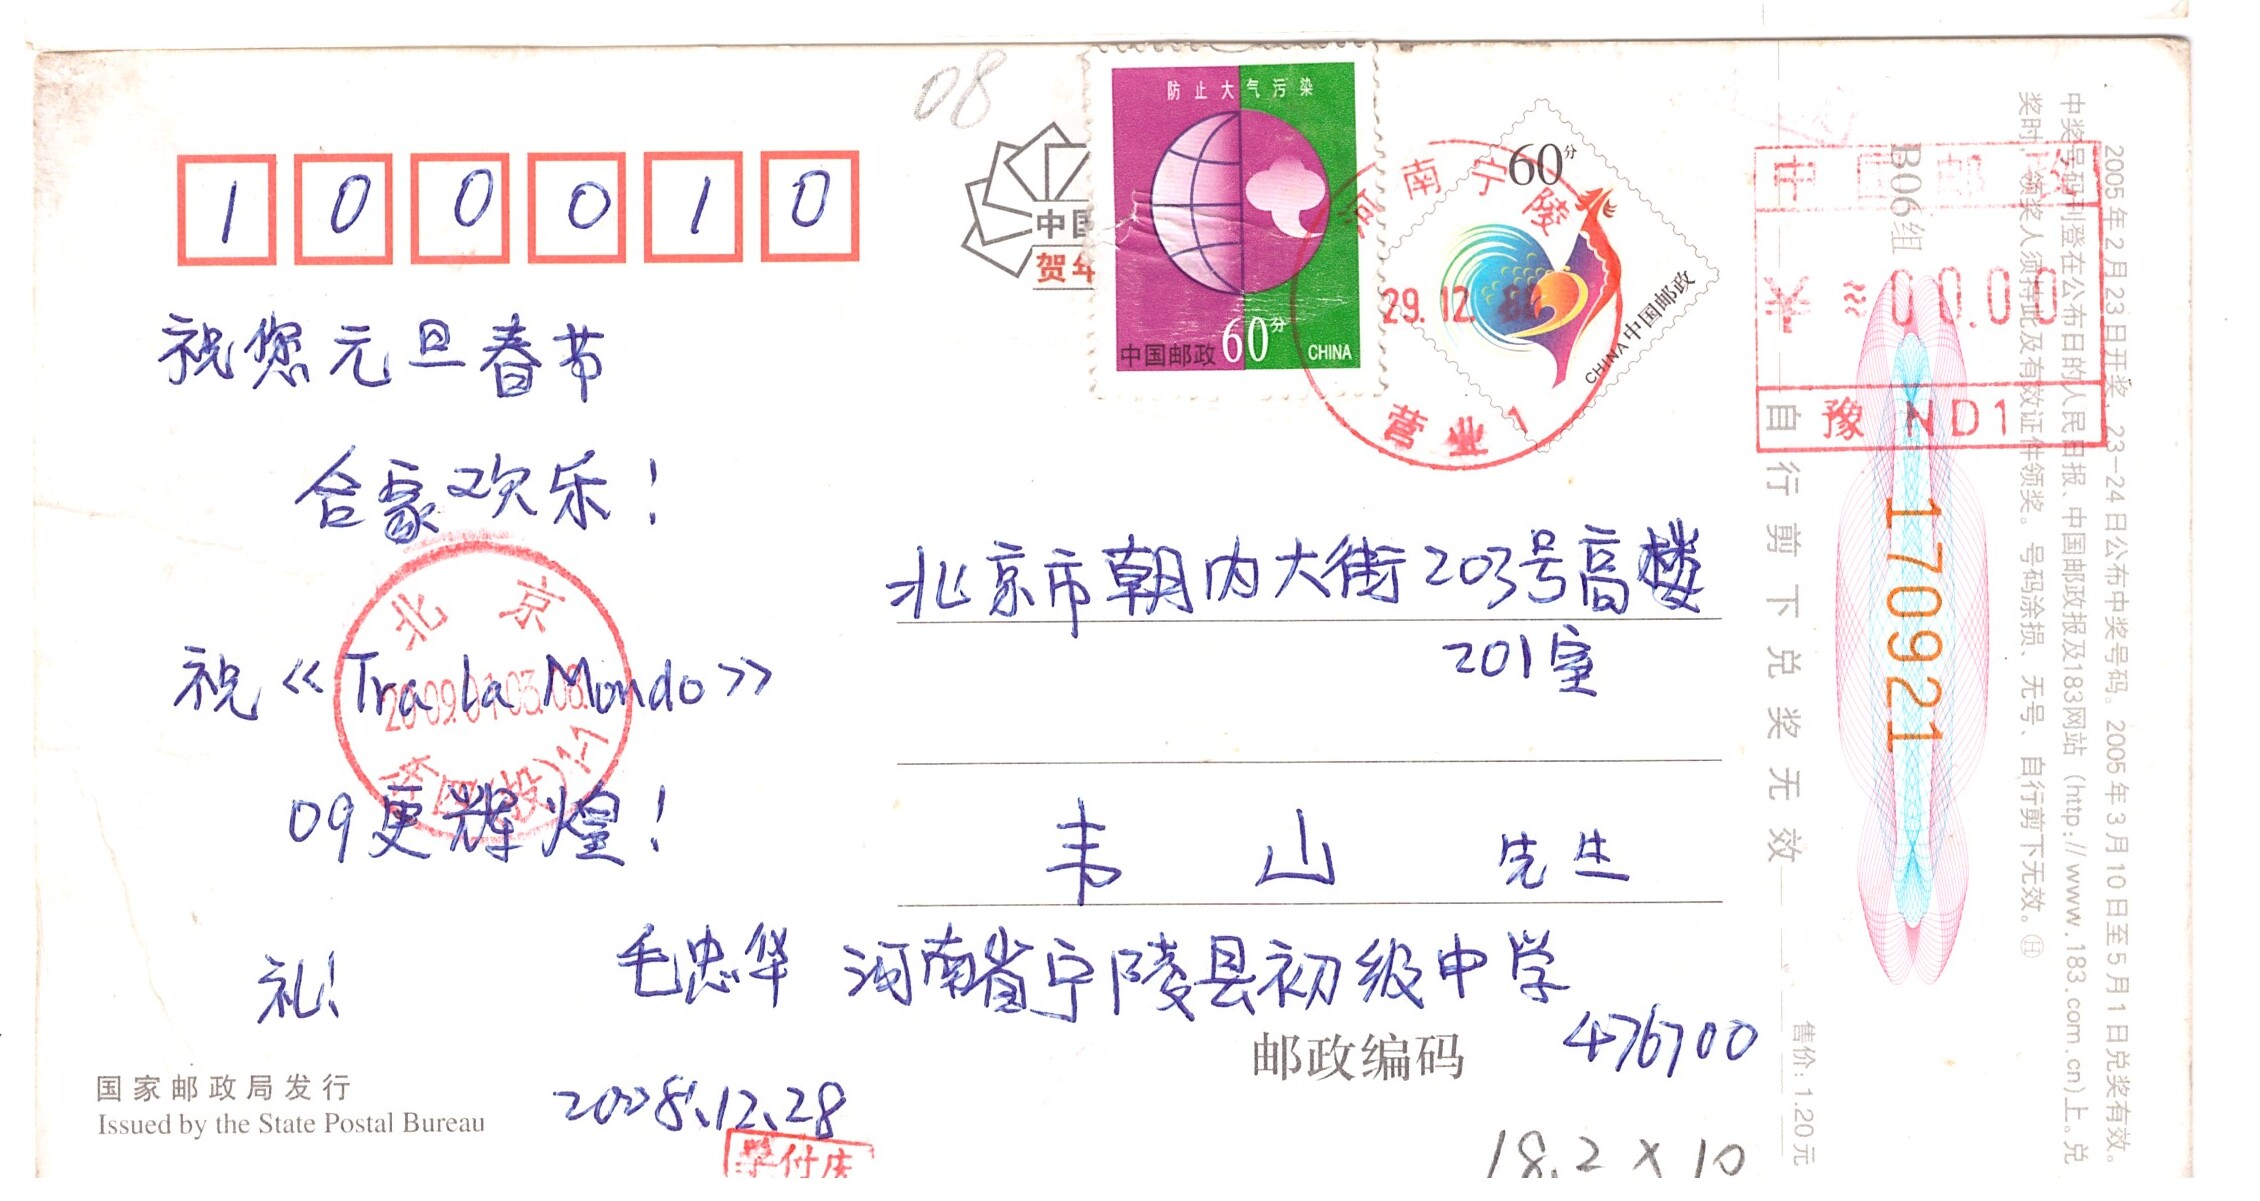 08
1 0 0 0 1 0
防止大气污染
中国邮政 60分 CHINA
60分
CHINA 中国邮政
河南宁陵
29.12.
营业1
中国邮政
00.00
豫 ND1
中国
贺年
祝您元旦春节
合家欢乐！
祝《Tra la Mondo》
09更辉煌！
礼！
北京
2009.01.03.08
北京市朝内大街203号高楼
201室
韦 山 先生
毛忠华 河南省宁陵县初级中学
邮政编码 476700
2008.12.28
国家邮政局发行
Issued by the State Postal Bureau
18.2 x 10
自行剪下兑奖无效
售价：1.20元
B06组
170921
2005年2月23日开奖，23-24日公布中奖号码。2005年3月10日至5月1日兑奖有效。
中奖号码刊登在公布日的人民日报、中国邮政报及183网站（http://www.183.com.cn)上。兑
奖时，领奖人须持此及有效证件领奖。号码涂损、无号、自行剪下无效。